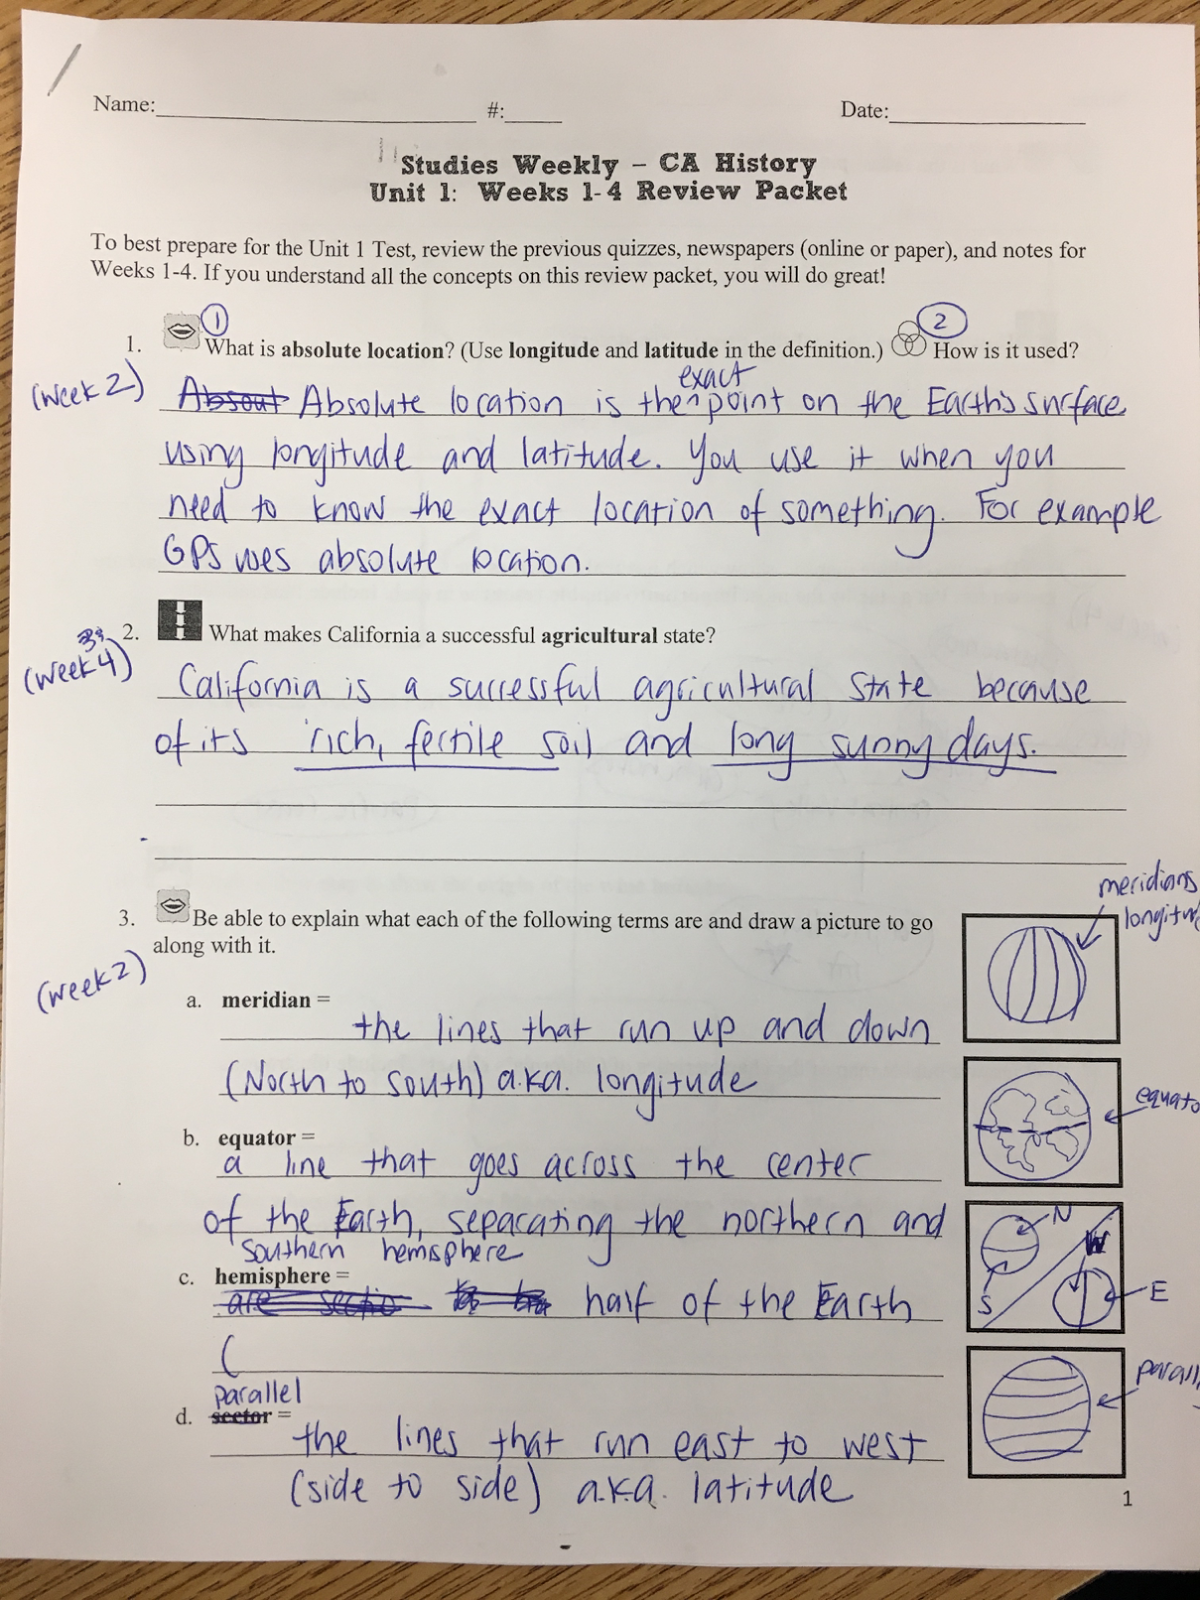 Name:
#:
Date:
Studies Weekly – CA History
Unit 1: Weeks 1-4 Review Packet
To best prepare for the Unit 1 Test, review the previous quizzes, newspapers (online or paper), and notes for
Weeks 1-4. If you understand all the concepts on this review packet, you will do great!
1. ① What is absolute location? (Use longitude and latitude in the definition.) ② How is it used?
(Week 2)
exact
Absout Absolute location is the ^ point on the Earth's surface
using longitude and latitude. You use it when you
need to know the exact location of something. For example
GPS uses absolute location.
2. What makes California a successful agricultural state?
(Week 4)
California is a successful agricultural state because
of its rich, fertile soil and long sunny days.
3. Be able to explain what each of the following terms are and draw a picture to go
along with it.
(Week 2)
meridians
a. meridian =
the lines that run up and down
(North to south) a.k.a. longitude
b. equator =
a line that goes across the center
of the Earth, separating the northern and
southern hemisphere
N
W
S
E
c. hemisphere =
are sectio half of the Earth
(
parallel
d. sector =
the lines that run east to west
(side to side) a.k.a. latitude
1